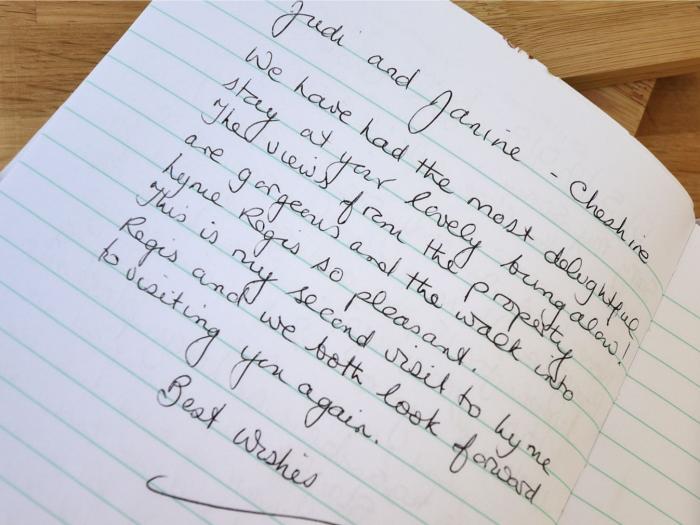 Judi and Janine - Cheshire
We have had the most delightful
stay at your lovely bungalow!
The views from the property
are gorgeous and the walk into
Lyme Regis so pleasant.
This is my second visit to Lyme
Regis and we both look forward
to visiting you again.
Best Wishes